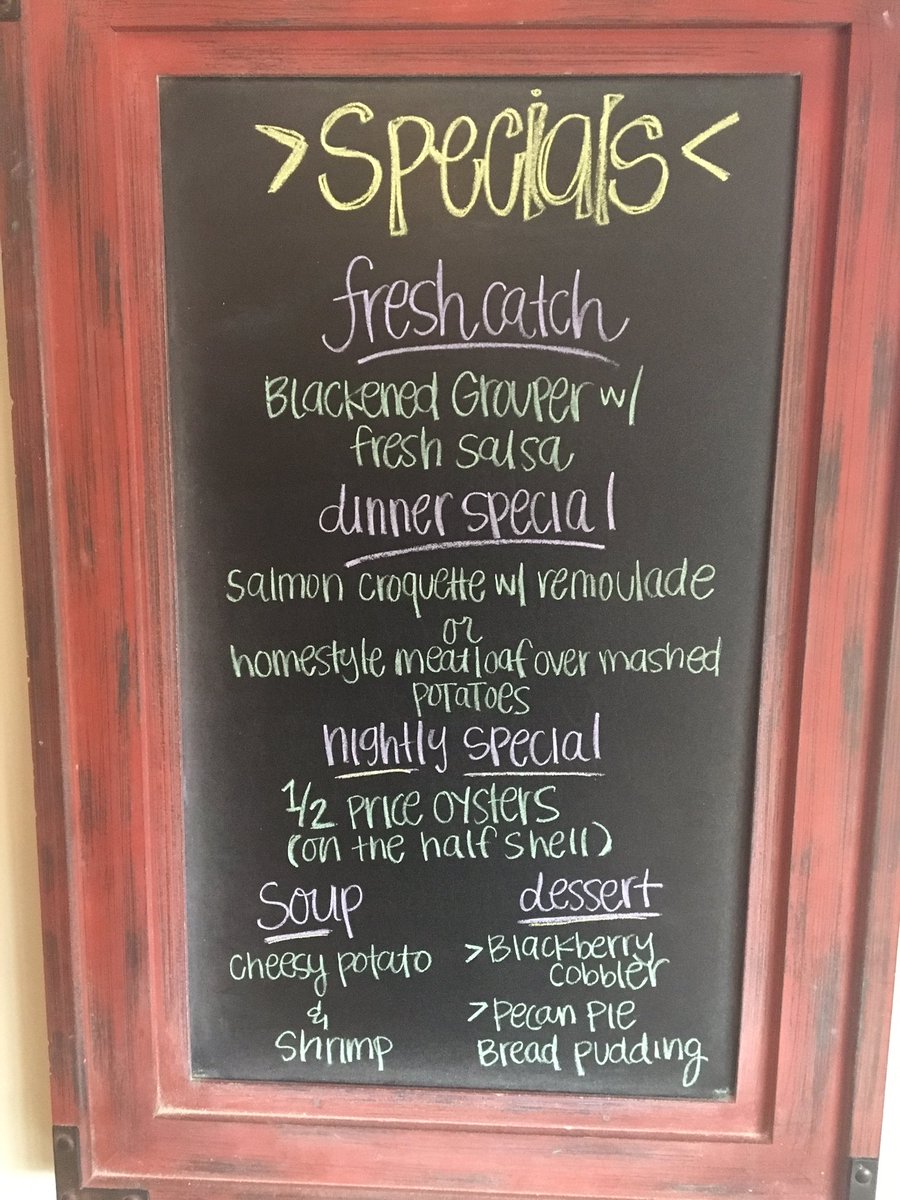 >Specials<
fresh catch
Blackened Grouper w/
fresh salsa
dinner special
salmon croquette w/ remoulade
or
homestyle meatloaf over mashed
potatoes
nightly special
1/2 price oysters
(on the half shell)
soup
cheesy potato
&
shrimp
dessert
>Blackberry
cobbler
>pecan pie
Bread pudding